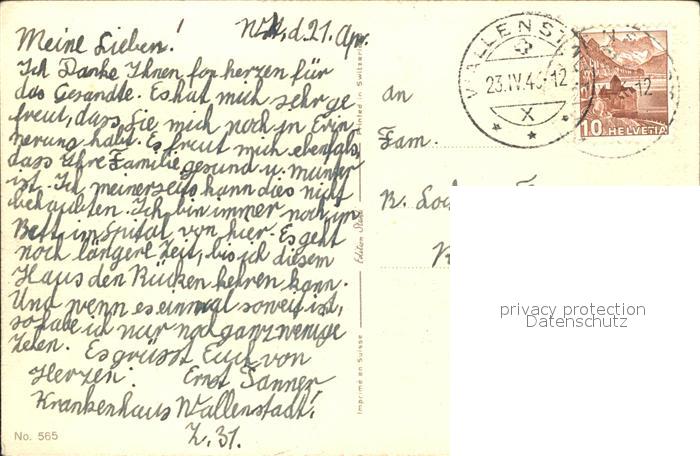 Meine Lieben! Wst, d. 21. Apr.
Ich Danke Ihnen fon herzen für
das Gesandte. Es hat mich sehr ge
freut, dass Sie mich noch in Erin
nerung habt. Es freut mich ebenfals,
dass Ihre Familie gesund u. munter
ist. Ich meinerseits kann dies nicht
behaubten. Ich bin immer noch im
Bett im Spital von hier. Es geht
noch längere Zeit, bis ich diesem
Haus den Rücken kehren kann.
Und wenn es einmal soweit ist,
so habe ich nur noch ganz wenige
Zeien. Es grüsst Euch von
Herzen: Ernst Tanner
Krankenhaus Wallenstadt!
Z. 31.
No. 565
Printed in Switzerland
Edition
Imprimé en Suisse
an
Fam.
R.
WALLENST
23.IV.4 -12
X
-12
10 HELVETIA
privacy protection
Datenschutz